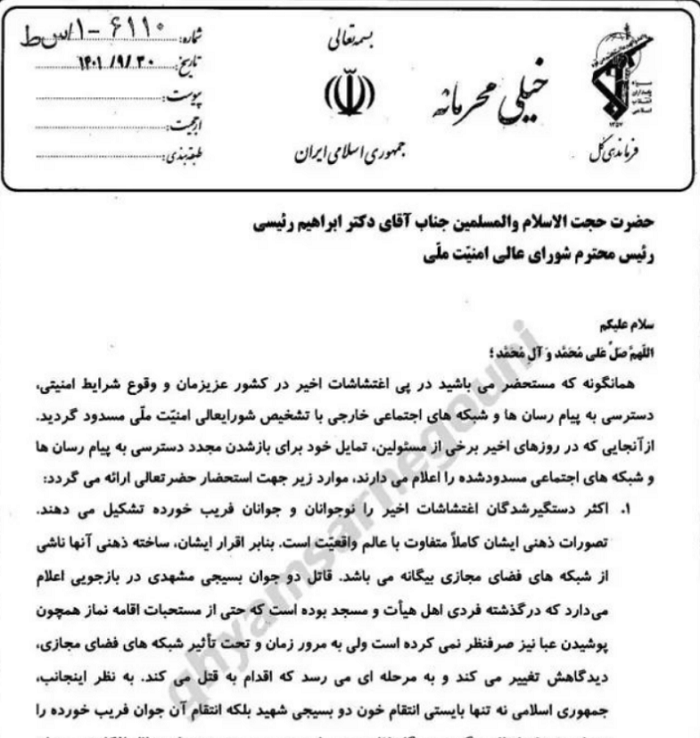 بسمه تعالی
جمهوری اسلامی ایران
خیلی محرمانه
سپاه پاسداران انقلاب اسلامی
۱۳۵۷
فرماندهی کل
شماره: ۶۱۱۰-۱/س ط
تاریخ: ۱۴۰۱/۹/۳۰
پیوست:
ارجحیت:
طبقه‌بندی:
حضرت حجت الاسلام والمسلمین جناب آقای دکتر ابراهیم رئیسی
رئیس محترم شورای عالی امنیّت ملّی
سلام علیکم
اللّهمَّ صَلِّ عَلی مُحَمَّد وَ آلِ مُحَمَّد ؛
همانگونه که مستحضر می باشید در پی اغتشاشات اخیر در کشور عزیزمان و وقوع شرایط امنیتی،
دسترسی به پیام رسان ها و شبکه های اجتماعی خارجی با تشخیص شورایعالی امنیّت ملّی مسدود گردید.
ازآنجایی که در روزهای اخیر برخی از مسئولین، تمایل خود برای بازشدن مجدد دسترسی به پیام رسان ها
و شبکه های اجتماعی مسدودشده را اعلام می دارند، موارد زیر جهت استحضار حضرتعالی ارائه می گردد:
۱. اکثر دستگیرشدگان اغتشاشات اخیر را نوجوانان و جوانان فریب خورده تشکیل می دهند.
تصورات ذهنی ایشان کاملاً متفاوت با عالم واقعیّت است. بنابر اقرار ایشان، ساخته ذهنی آنها ناشی
از شبکه های فضای مجازی بیگانه می باشد. قاتل دو جوان بسیجی مشهدی در بازجویی اعلام
می‌دارد که درگذشته فردی اهل هیأت و مسجد بوده است که حتی از مستحبات اقامه نماز همچون
پوشیدن عبا نیز صرفنظر نمی کرده است ولی به مرور زمان و تحت تأثیر شبکه های فضای مجازی،
دیدگاهش تغییر می کند و به مرحله ای می رسد که اقدام به قتل می کند. به نظر اینجانب،
جمهوری اسلامی نه تنها بایستی انتقام خون دو بسیجی شهید بلکه انتقام آن جوان فریب خورده را
ghyamsarnegouni